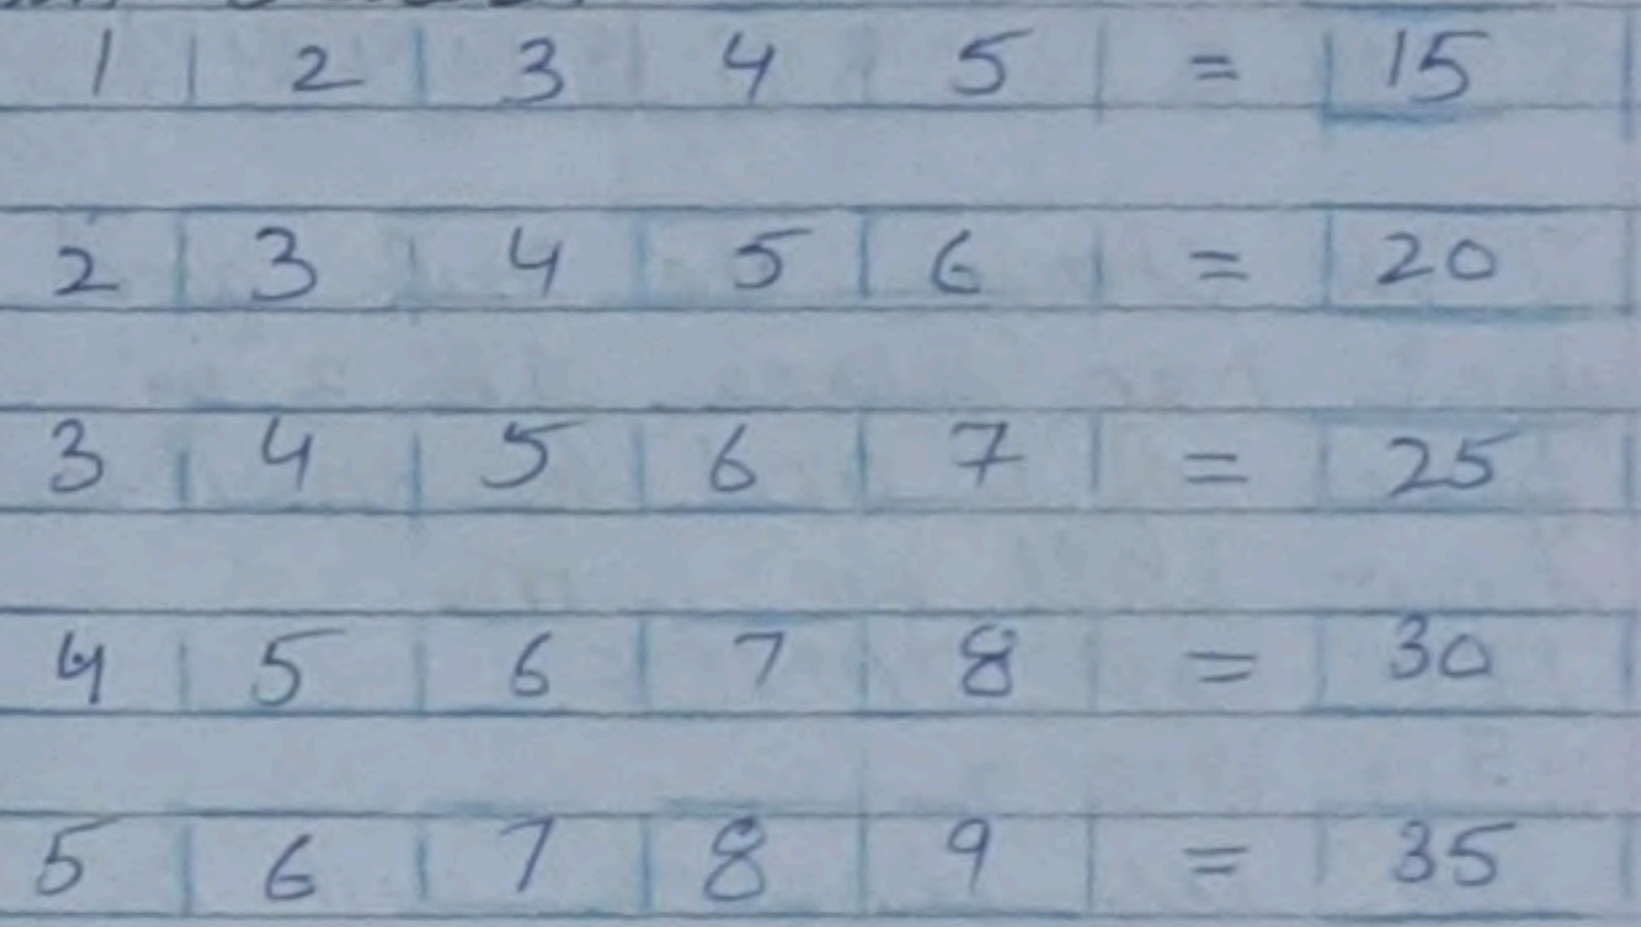 1 2 3 4 5 = 15
2 3 4 5 6 = 20
3 4 5 6 7 = 25
4 5 6 7 8 = 30
5 6 7 8 9 = 35